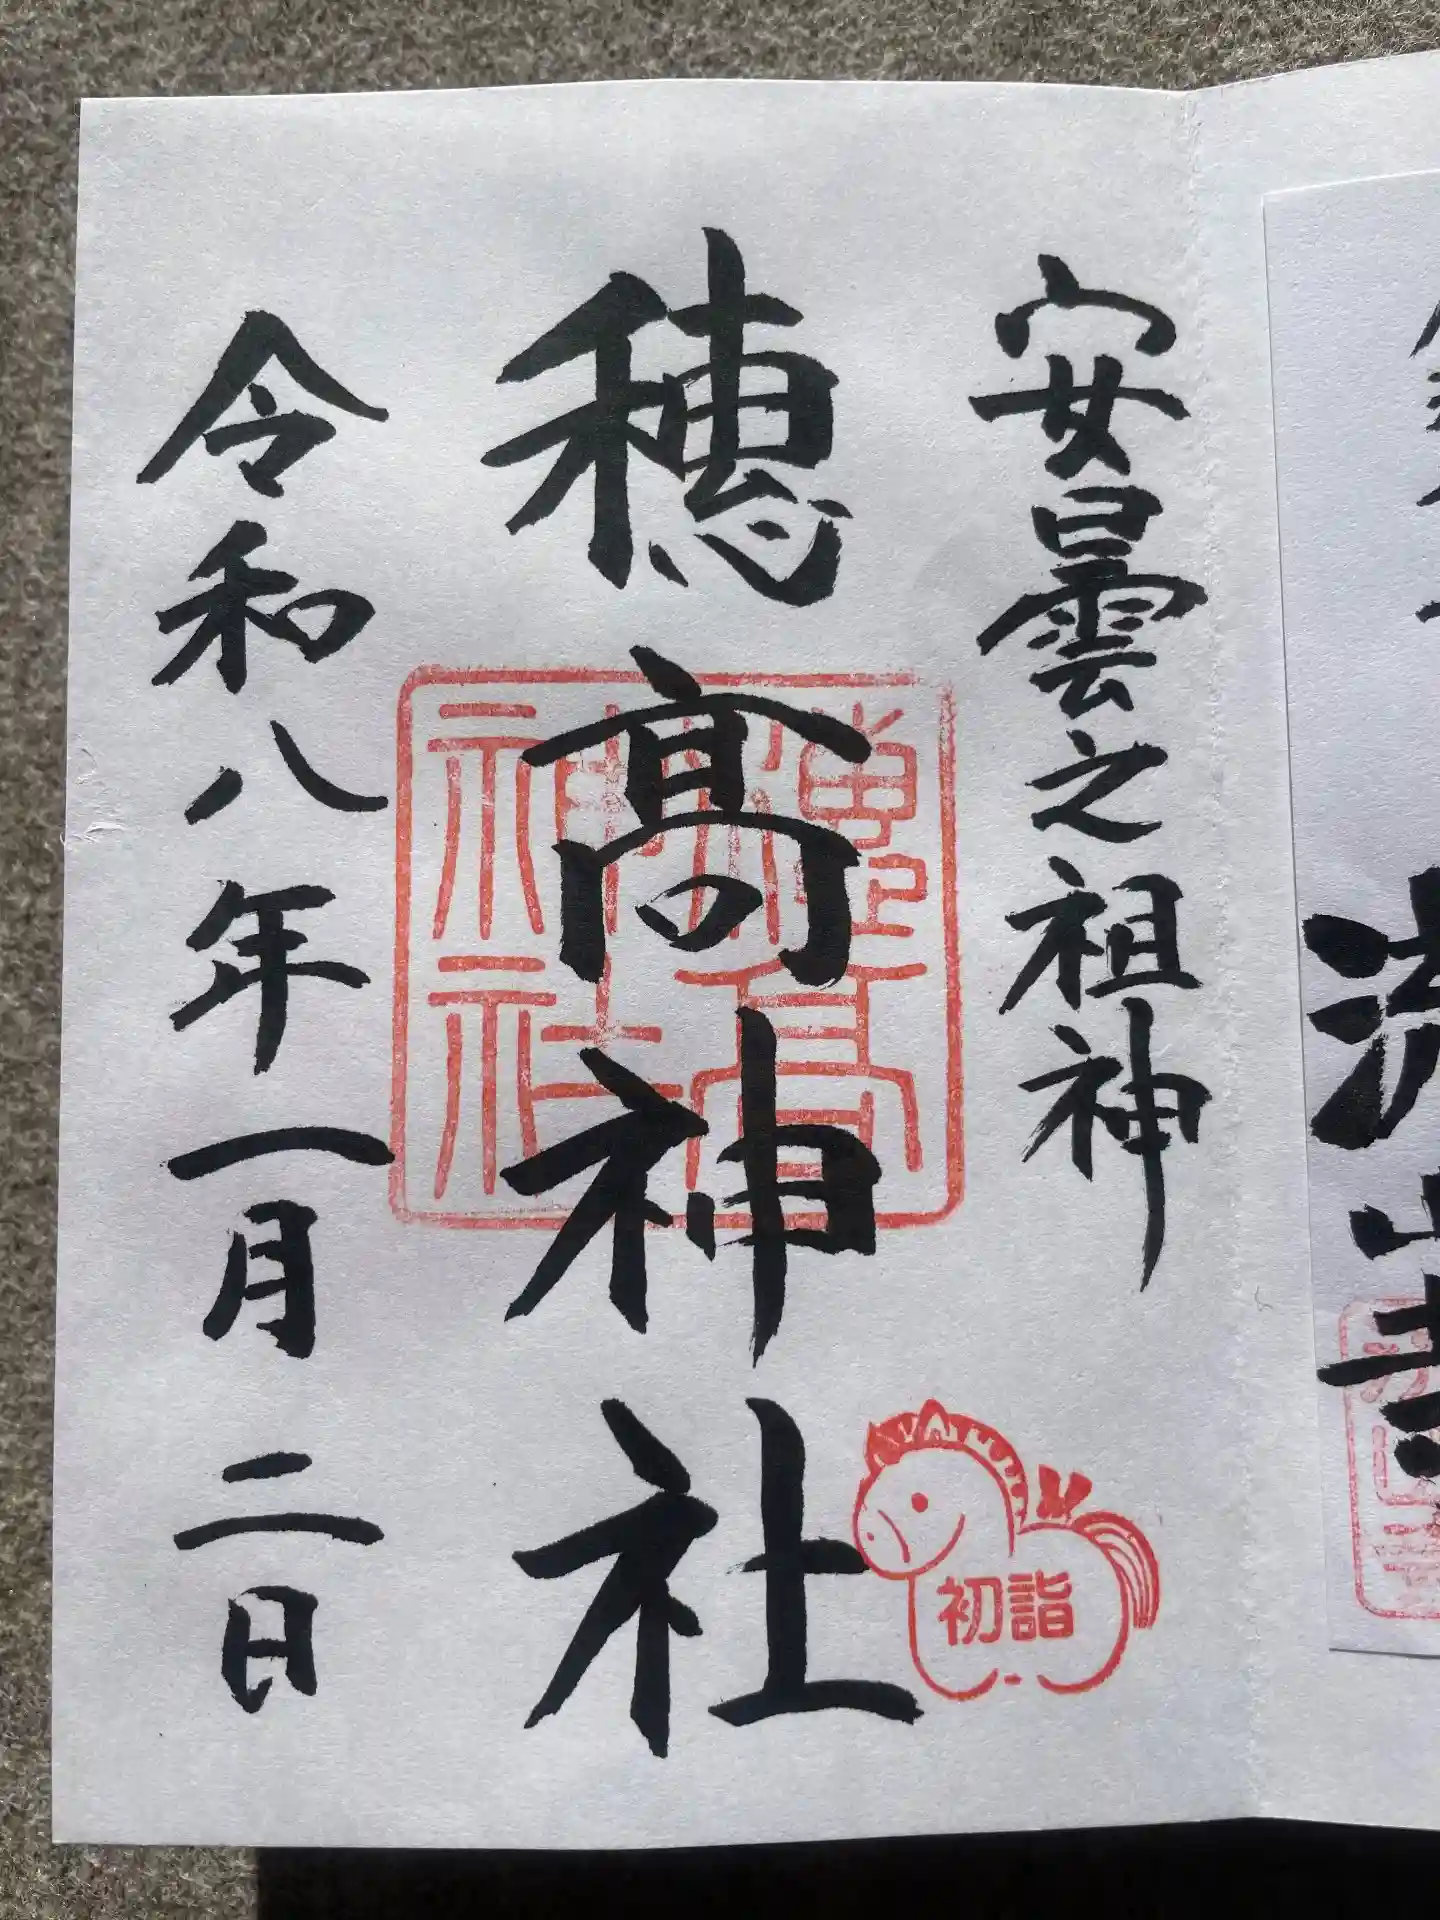 安曇之祖神
穂髙神社
令和八年一月二日
穂高
神社
初詣